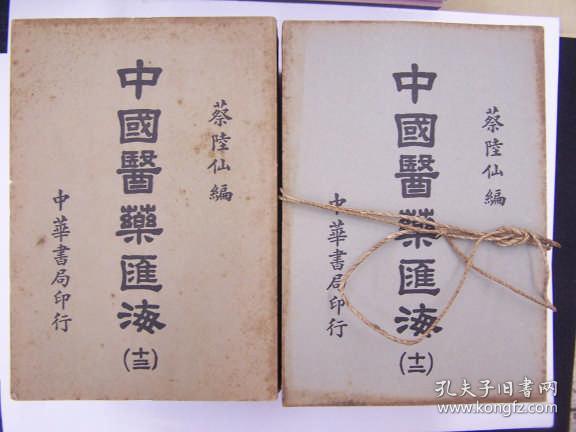 蔡陸仙編
中國醫藥匯海
(十三)
中華書局印行
蔡陸仙編
中國醫藥匯海
(十二)
中華書局印行
孔夫子旧书网
www.kongfz.com